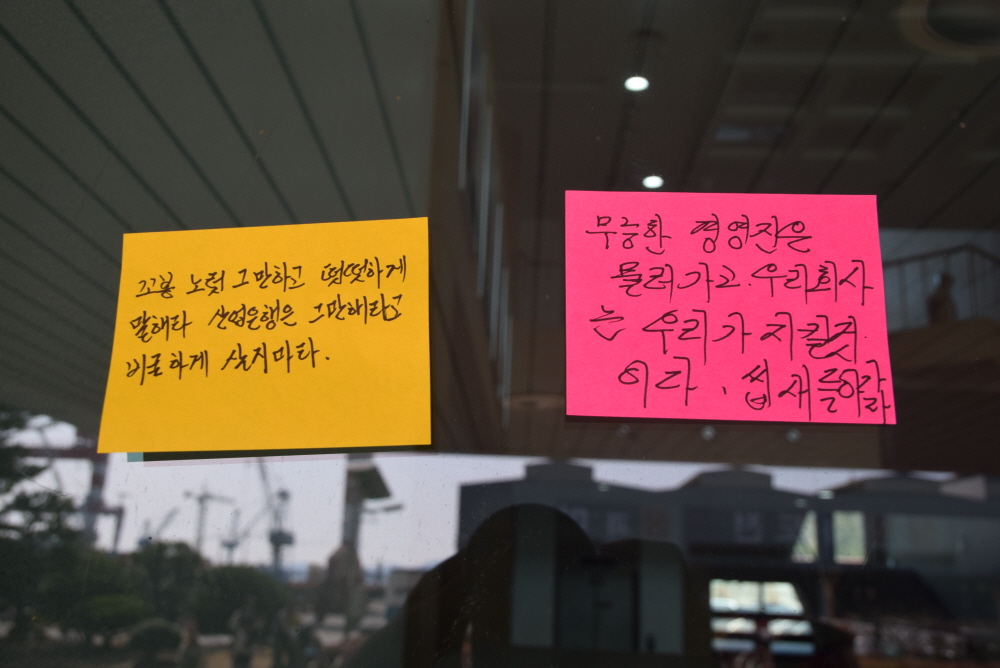 꼬봉 노릇 그만하고 떳떳하게
말해라 산업은행은 그만해라고
비굴하게 살지마라.
무능한 경영진은
물러가고. 우리회사
는 우리가 지킬것
이다. 씹새들아